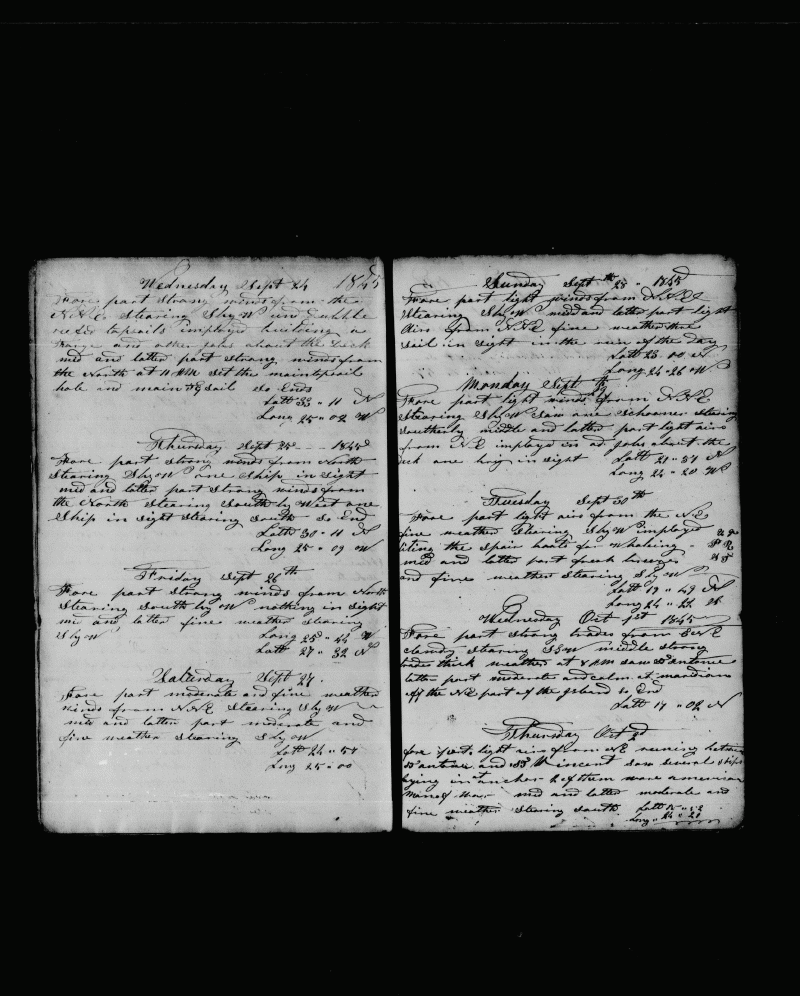 Wednesday Sept 24 1845
Fore part Strong winds from the
N.N.E Stearing S by W und dubble
reefd topsails employed
and other jobs about the Deck
mid and latter part strong winds from
the North at 11 AM Set the maintopsail
hole and main sail So Ends
Latt 33 " 11 N
Long 25 " 02 W
Thursday Sept 25 1845
Fore part strong winds from North
Stearing S by W one Ship in Sight
mid and latter part Strong winds from
the North Stearing South by West one
Ship in Sight Stearing South So End
Latt 30 " 11 N
Long 25 " 09 W
Friday Sept 26th
Fore part strong winds from North
Stearing South by W nothing in Sight
mid and latter fine weather Stearing
S by W Long 25 " 44 W
Latt 27 " 32 N
Saturday Sept 27
Fore part moderate and fine weather
winds from N.N.E Stearing S by W
mid and latter part moderate and
fine weather Stearing S by W
Latt 24 " 57
Long 25 " 00
Sunday Sept 1845
Fore part light winds from N.N.E
Stearing S by W mid and latter part light
Airs from N.N.E fine weather
Sail in Sight in the run of the day
Latt 23 " 00 N
Long 24 " 26 W
Monday Sept
Fore part light winds from N.N.E
Stearing S by W Saw one Schooner Stearing
Southerly middle and latter part light airs
from N.E imployd in od jobs about the
eck one brig in Sight Latt 21 " 37 N
Long 24 " 20 W
Tuesday Sept 30th
Fore part light airs from the N.E
fine weather Stearing S by W imployed
the Spair boats for Whaling
mid and latter part fresh breezes
and fine weather Stearing S by W
Latt 19 " 49 N
Long 24 " 22 W
Wednesday Oct 1st 1845
Fore part Strong trades from E.N.E
clowdy Stearing S by W middle strong
trades thick weather at 8 AM Saw St antonio
latter part moderate and calm at meardian
off the N.E part of the Island So End
Latt 17 " 02 N
Thursday Oct 2d
fore part light airs from N.E running between
St antone and St Vincent Saw several Ships
lying in anchor 2 of them ware american
men of War mid and latter moderate and
fine weather Stearing South Latt
Long 24 " 21